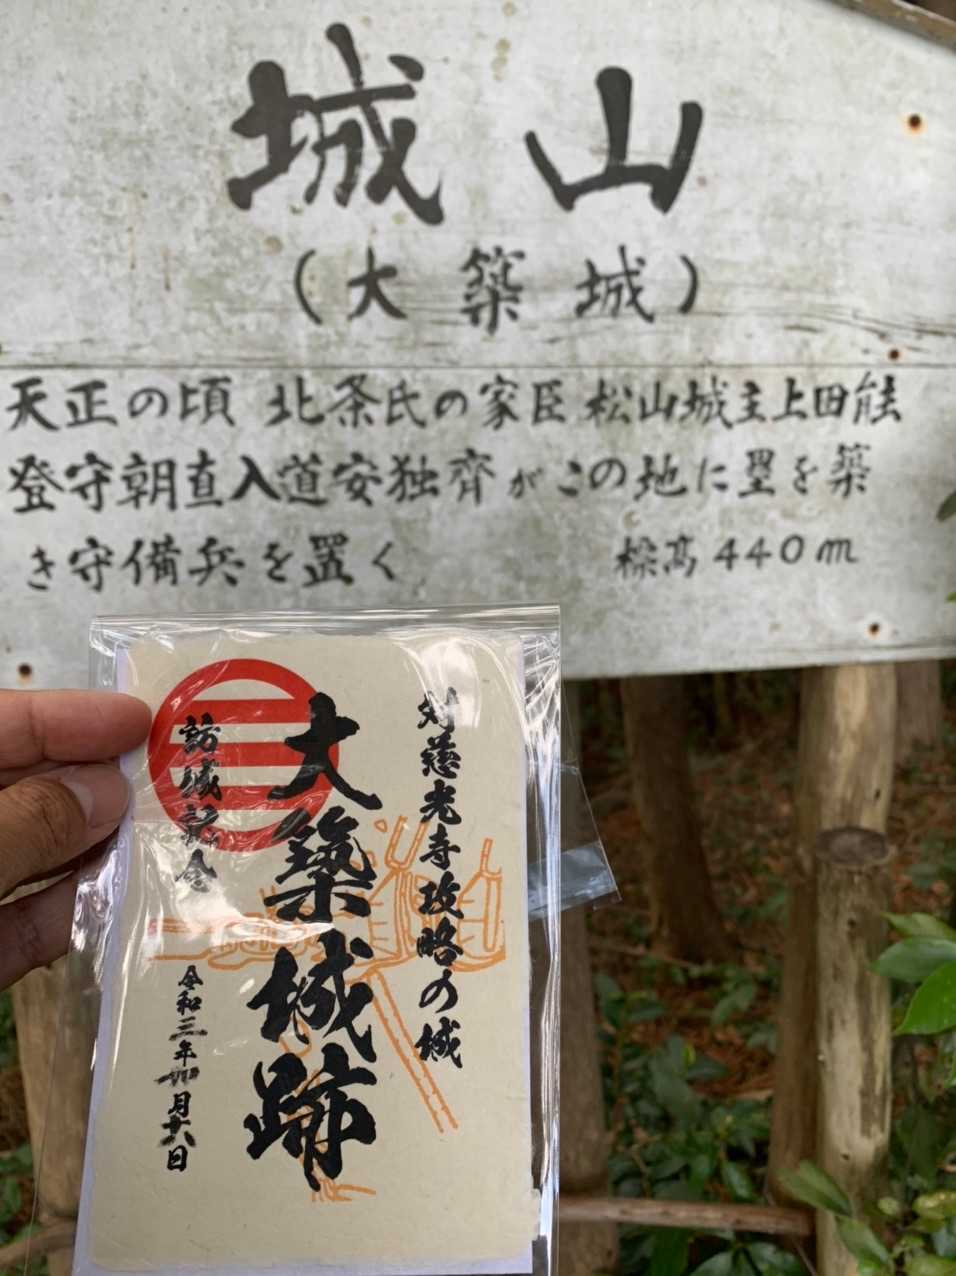 城山
(大築城)
天正の頃 北条氏の家臣 松山城主上田能
登守朝直入道安独齊がこの地に塁を築
き守備兵を置く 標高440m
対慈光寺攻略の城
大築城跡
訪城記念
令和三年四月十六日